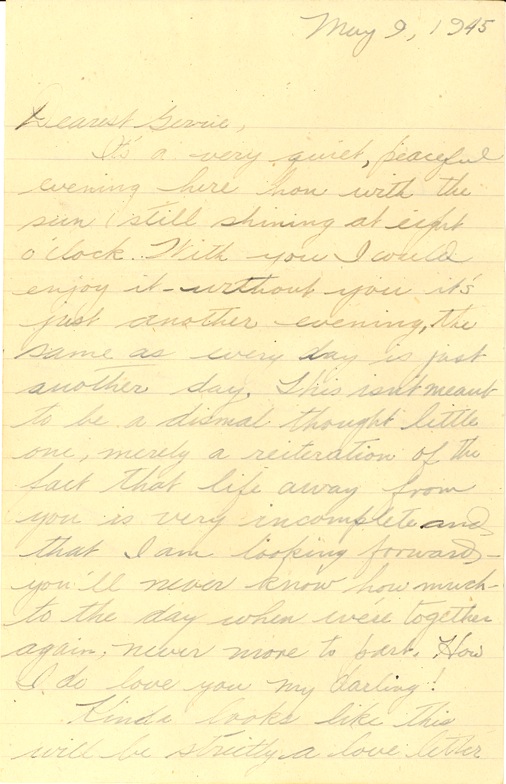 May 9, 1945
Dearest
It's a very quiet, peaceful
evening here hon with the
sun still shining at eight
o'clock. With you I would
enjoy it - without you it's
just another evening, the
same as every day is just
another day. This isn't meant
to be a dismal thought little
one, merely a reiteration of the
fact that life away from
you is very incomplete and
that I am looking forward -
you'll never know how much -
to the day when we're together
again, never more to part. How
I do love you my darling!
Kinda looks like this
will be strictly a love letter